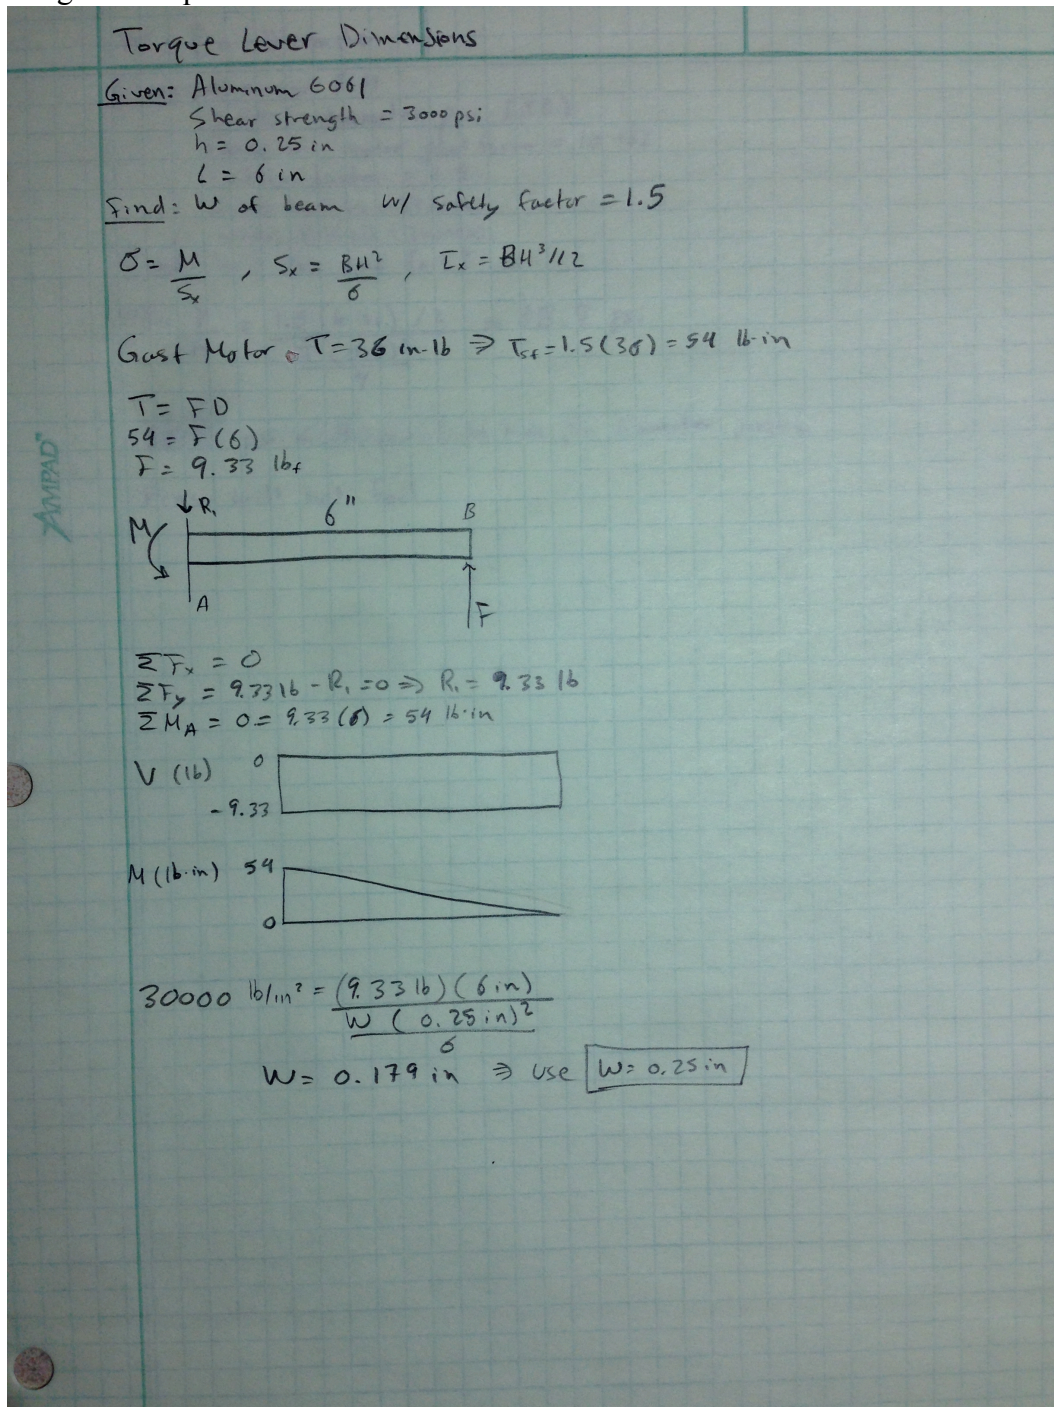 Torque Lever Dimensions
Given: Aluminum 6061
Shear strength = 3000 psi
h = 0.25 in
L = 6 in
Find: W of beam w/ safety factor = 1.5
σ = M/Sx , Sx = BH²/6 , Ix = BH³/12
Gast Motor T=36 in-lb ⇒ Tsf=1.5(36) = 54 lb-in
T = FD
54 = F(6)
F = 9.33 lbf
AMPAD™
R₁ 6" B
M
A F
ΣFx = 0
ΣFy = 9.33 lb - R₁ = 0 ⇒ R₁ = 9.33 lb
ΣMA = 0 = 9.33(6) = 54 lb·in
V (lb) 0
-9.33
M (lb·in) 54
0
30000 lb/in² = (9.33 lb)(6 in)
W (0.25 in)²
6
W = 0.179 in ⇒ use W = 0.25 in